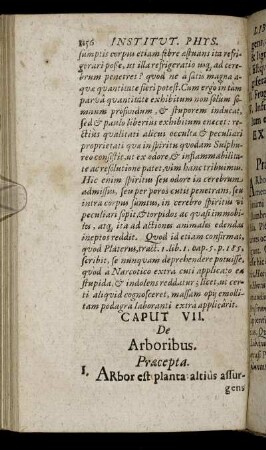 1156 INSTITUT. PHYS.
sumptis corpus etiam febre æstuans ita refri-
gerari posse, ut illa refrigeratio usq; ad cere-
brum penetret? quod ne à satis magna a-
quæ quantitate fieri potest. Cum ergo in tam
parva quantitate exhibitum non solum som-
num profundum, & stuporem inducat,
sed & paulo liberius exhibitum enecet: re-
ctius qualitati alicui occultæ & peculiari
proprietati quæ in spiritu quodam Sulphu-
reo consistit, ut ex odore, & inflammabilita-
te ac resolutione patet, vim hanc tribuimus.
Hic enim spiritus seu odore in cerebrum
admissus, seu per poros cutis penetrans, seu
intra corpus sumtus, in cerebro spiritus vi
peculiari sopit, & torpidos ac quasi immobi-
les, atq; ita ad actiones animales edendas
ineptos reddit. Quod id etiam confirmat,
quod Platerus, tract. 1. lib. 1. cap. 5. p. 185.
scribit, se nunquam deprehendere potuisse,
quod a Narcotico extra cuti applicato ea
stupida, & indolens reddatur; licet, ut cer-
ti aliquid cognosceret, massam opij emolli-
tam podagra laboranti extra applicarit.
CAPUT VII.
De
Arboribus.
Præcepta.
I. ARbor est planta altius assur-
gens